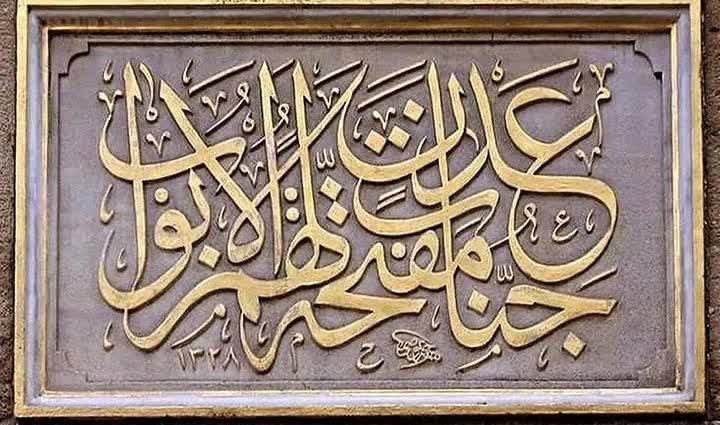 جَنَّاتِ عَدْنٍ مُفَتَّحَةً لَهُمُ الْأَبْوَابُ
١٣٢٨